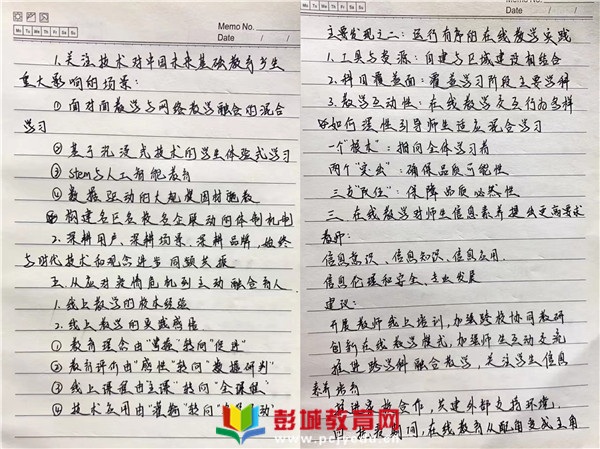 Memo No.
Mo Tu We Th Fr Sa Su
Date / /
1.关注技术对中国未来基础教育产生
重大影响的场景:
① 面对面教学与网络教学融合的混合
学习
② 基于沉浸式技术的学生体验式学习
③ stem与人工智能教育
④ 数据驱动的大规模因材施教
构建名区名校名企联动的体制机制
2.深耕用户、深耕场景、深耕品牌,始终
与时代技术和观念进步同频共振
五、从应对疫情危机到主动融合育人
1.线上教学的校本经验
2.线上教学的实践感悟
① 教育理念由"灌输"转向"促进"
② 教育评价由"感性"转向"数据研判"
③ 线上课程由"主课"转向"全课程"
④ 技术应用由"转向"
Memo No.
Mo Tu We Th Fr Sa Su
Date / /
主要发现之二:运行有序的在线教学实践
1.工具与资源:自建与区域建设相结合
2.科目覆盖面:覆盖学习阶段主要学科
3.教学互动性:在线教学交互行为多样
如何理性引导师生适应混合学习
一个"技术":指向全体学习者
两个"突出":确保品质可能性
三支"队伍":保障品质必然性
三、在线教学对师生信息素养提出更高要求
教师:
信息意识、信息知识、信息应用、
信息伦理和安全、专业发展
建议:
开展教师线上培训,加强跨校协同教研
创新在线教学模式,加强师生互动交流
推进跨学科融合教学,关注学生信息
素养培育
推进家校合作,共建外部支持环境
期间,在线教育从配角变成主角
彭城教育网
www.pcjyedu.cn